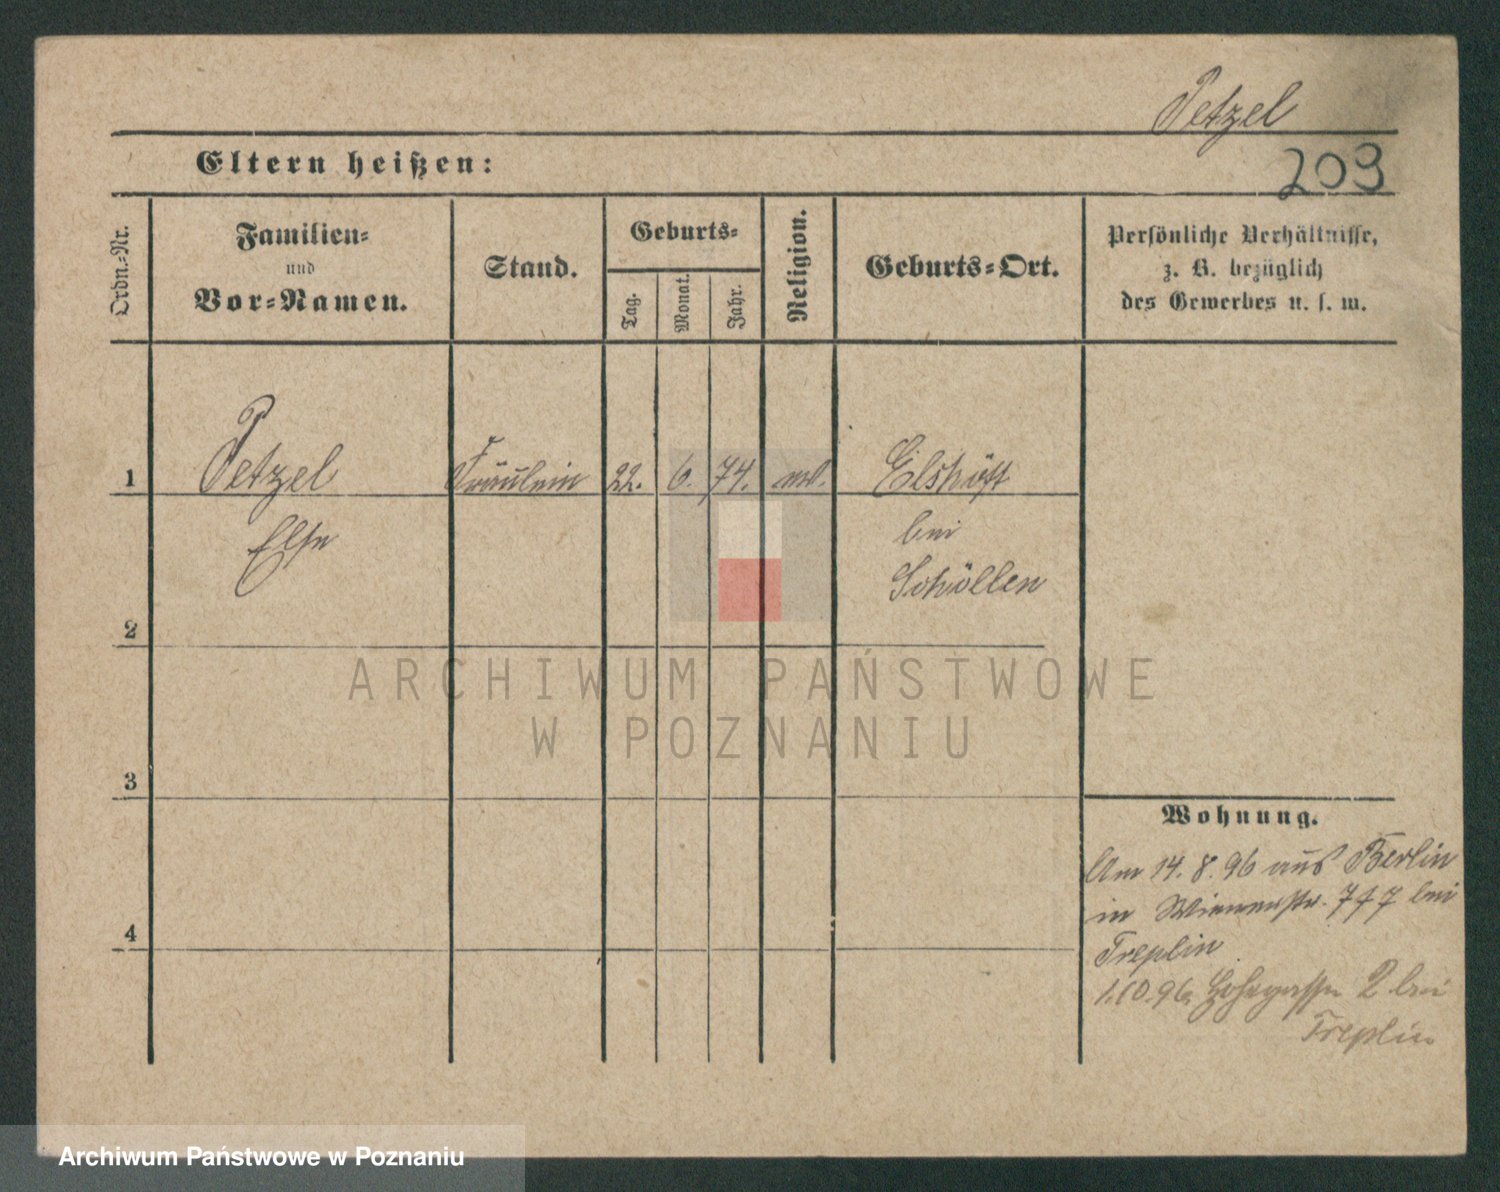 Petzel
Eltern heißen:
209
Ordn.-Nr.
Familien-
und
Vor-Namen.
Stand.
Geburts-
Tag.
Monat.
Jahr.
Religion.
Geburts-Ort.
Persönliche Verhältnisse,
z. B. bezüglich
des Gewerbes u. s. w.
1
Petzel
Else
Fräulein
22.
6.
74.
ev.
bei
Schöllen
2
3
4
Wohnung.
Am 14. 8. 96 aus Berlin
in bei
Treplin
1.10.96. 2 bei
Treplin
ARCHIWUM PAŃSTWOWE
W POZNANIU
Archiwum Państwowe w Poznaniu